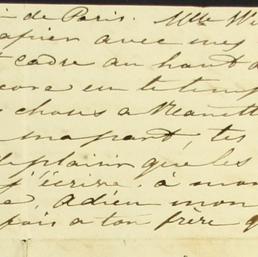 de Paris. Mlle Wi
papier avec mes
t cadre au haut d
core eu le temp
choux a Nanett
ma part, tu
plaisir que les
j'écrire. à mon
Adieu mon
pois a ton frère q